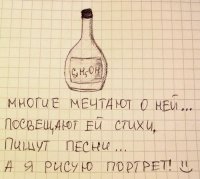 C₂H₅OH
МНОГИЕ МЕЧТАЮТ О НЕЙ...
ПОСВЕЩАЮТ ЕЙ СТИХИ,
ПИШУТ ПЕСНИ...
А Я РИСУЮ ПОРТРЕТ! :)